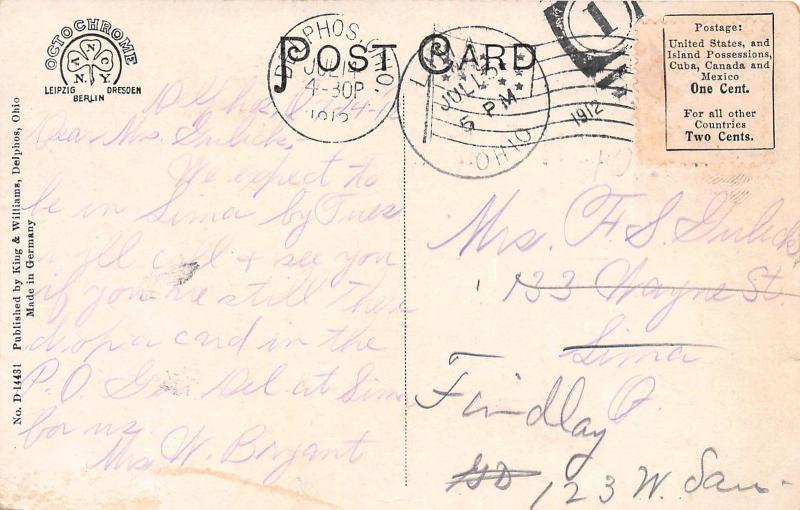 OCTOCHROME
NANCY
LEIPZIG DRESDEN
BERLIN
POST CARD
DELPHOS, O.
JUL 14
4-30P
1912
LIMA
JUL 15
5 PM
OHIO
1912
1
Postage:
United States, and
Island Possessions,
Cuba, Canada and
Mexico
One Cent.
For all other
Countries
Two Cents.
No. D-14431 Published by King & Williams, Delphos, Ohio
Made in Germany
Delphos, O
Dear Mrs. Gulick,
We expect to
be in Lima by Tues
will call & see you
if you're still there
drop a card in the
P.O. Gen Del at Lima
for us.
Mrs W. Bryant
Mrs. F. S. Gulick
133 Wayne St.
Lima
O.
Findlay
GD
123 W. San